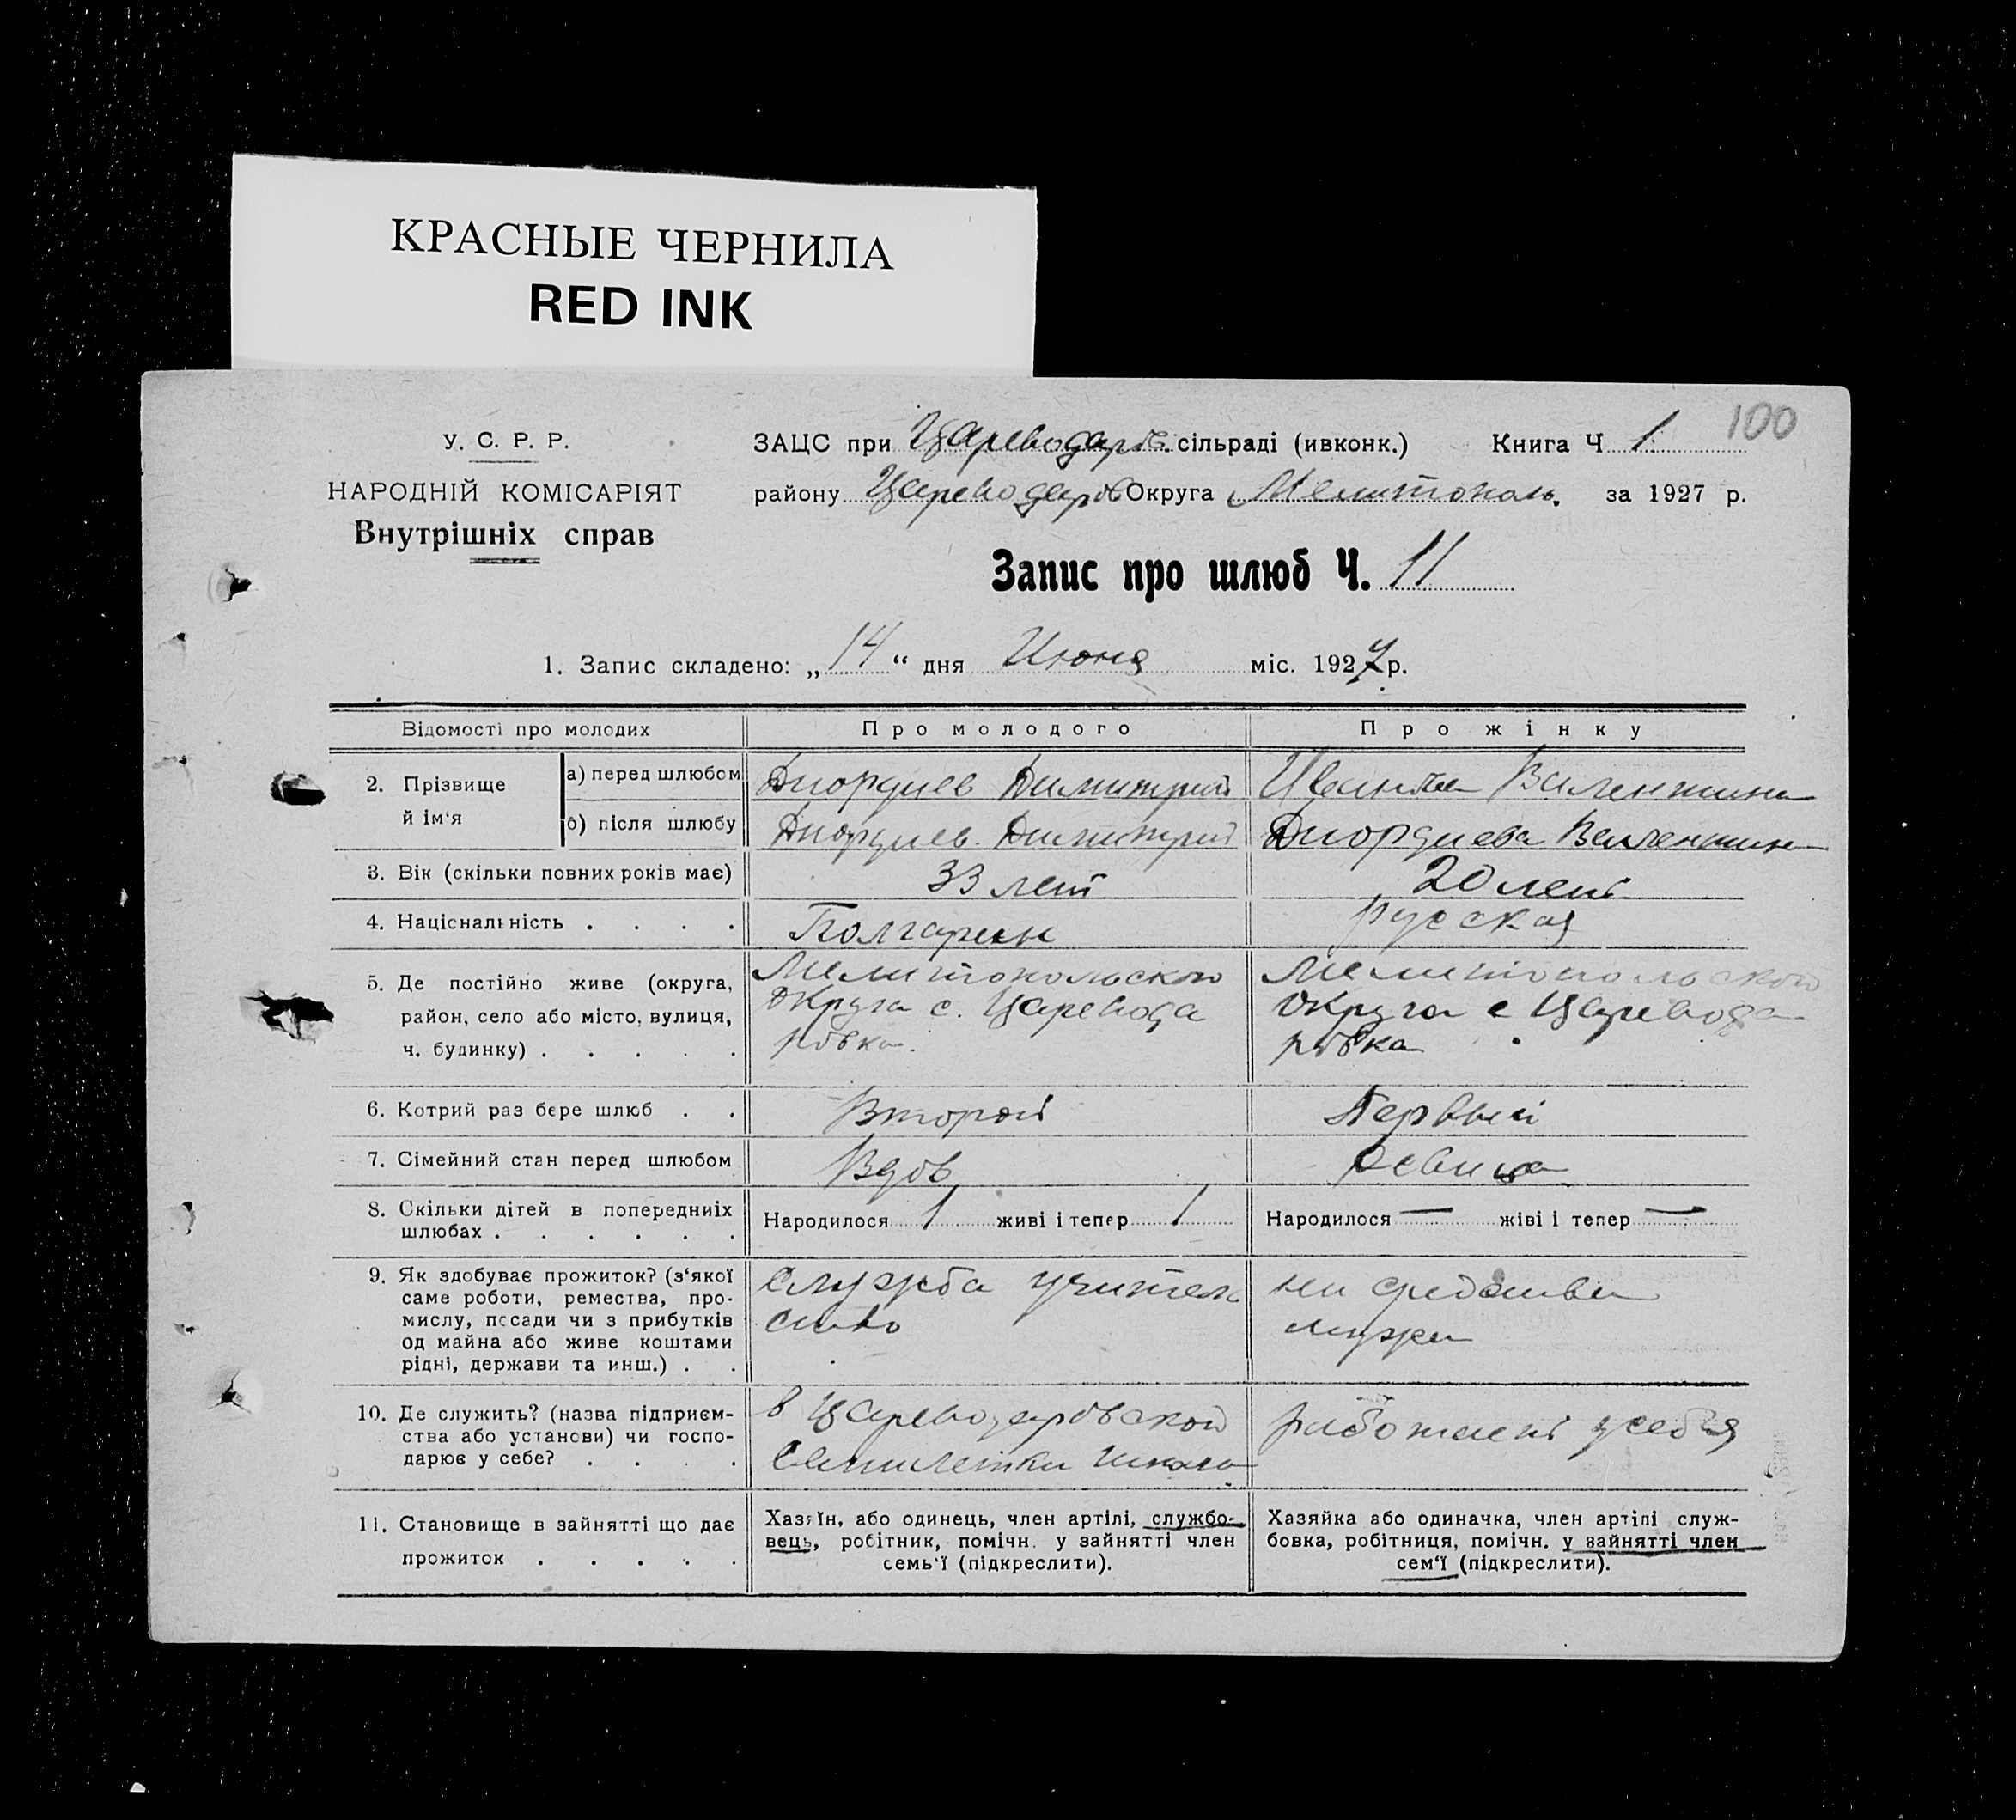 КРАСНЫЕ ЧЕРНИЛА
RED INK
100
У. С. Р. Р.
НАРОДНІЙ КОМІСАРІЯТ
Внутрішніх справ
ЗАЦС при Цареводаров. сільраді (ивконк.) Книга Ч 1
району Цареводаров Округа Мелитополь. за 1927 р.
Запис про шлюб Ч. 11
1. Запис складено: „14“ дня Июня міс. 1927 р.
Відомості про молодих
Про молодого
Про жінку
2. Прізвище й ім‘я
а) перед шлюбом
Диордиев Димитрий
Валентина
б) після шлюбу
Диордиев Димитрий
Диордиева Валентина
3. Вік (скільки повних років має)
33 лет
20 лет
4. Національність . . . .
Болгарин
русская
5. Де постійно живе (округа,
район, село або місто, вулиця,
ч. будинку) . . . . .
Мелитопольского
Округа с. Царевода
ровка.
Мелитопольской
Округа с Царевода
ровка
6. Котрий раз бере шлюб . .
Второй
Первый
7. Сімейний стан перед шлюбом
Вдов
девица
8. Скільки дітей в попередниіх
шлюбах . . . . . .
Народилося 1 живі і тепер 1
Народилося — жіві і тепер —
9. Як здобуває прожиток? (з‘якої
саме роботи, ремества, про-
мислу, посади чи з прибутків
од майна або живе коштами
рідні, держави та инш.) . .
Служба учитель
ство
на средства
мужа
10. Де служить? (назва підприєм-
ства або установи) чи госпо-
дарює у себе? . . . .
в Цареводаровской
Семилетки школа
работает у себя
11. Становище в зайнятті що дає
прожиток . . . . .
Хазяїн, або одинець, член артілі, службо-
вець, робітник, помічн. у зайнятті член
семь‘ї (підкреслити).
Хазяйка або одиначка, член артілі служ-
бовка, робітниця, помічн. у зайнятті член
сем‘ї (підкреслити).